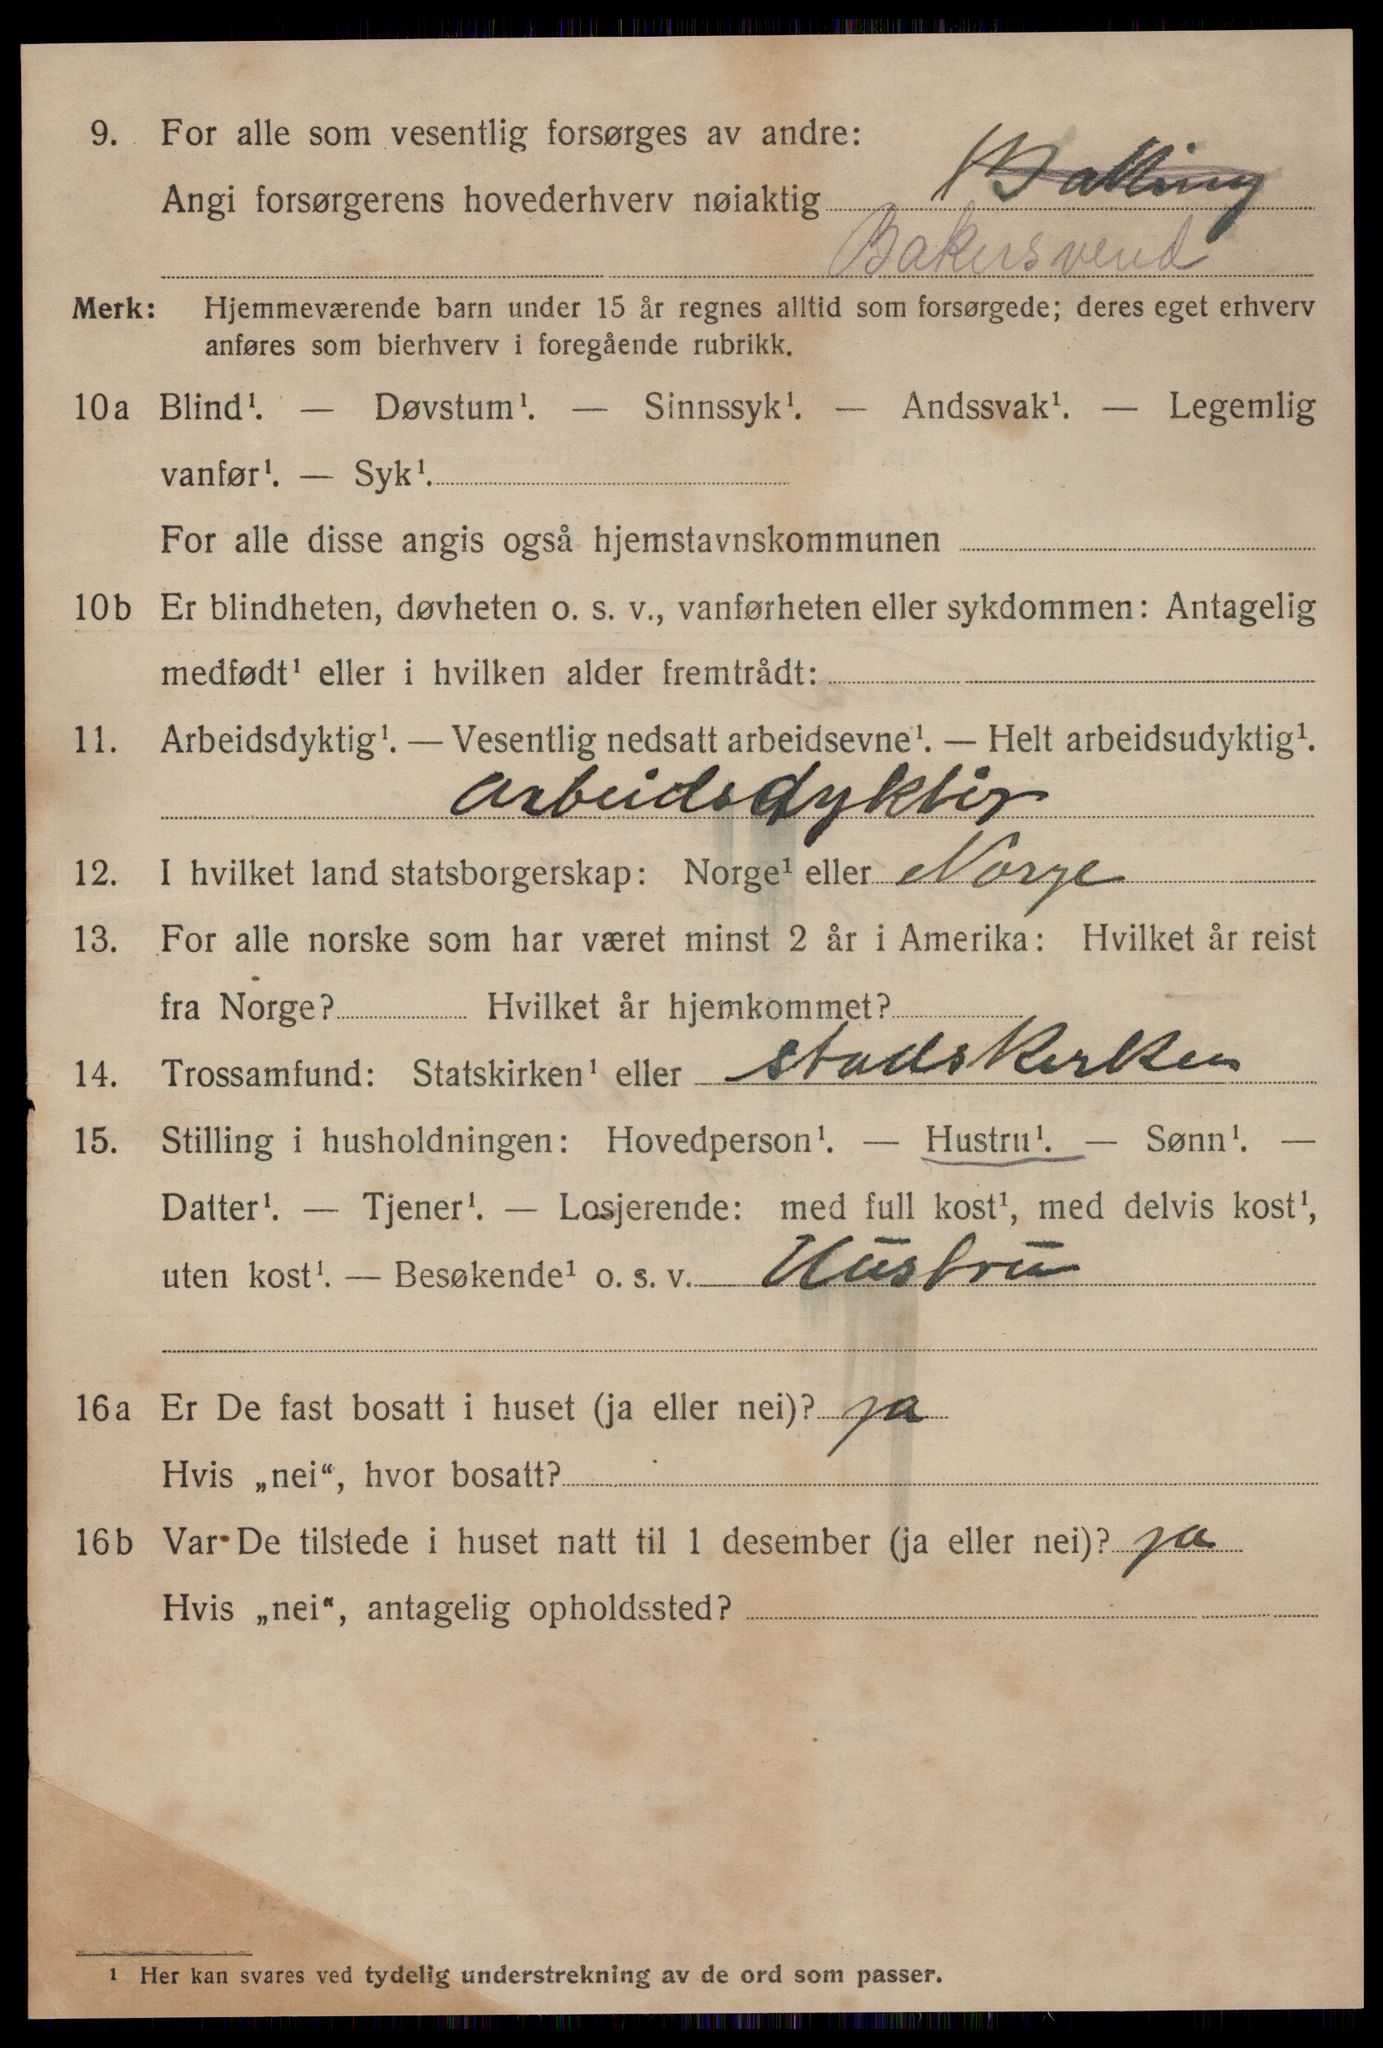 9. For alle som vesentlig forsørges av andre:
Angi forsørgerens hovederhverv nøiaktig
Bakersvend
Merk: Hjemmeværende barn under 15 år regnes alltid som forsørgede; deres eget erhverv
anføres som bierhverv i foregående rubrikk.
10a Blind¹. — Døvstum¹. — Sinnssyk¹. — Andssvak¹. — Legemlig
vanfør¹. — Syk¹.
For alle disse angis også hjemstavnskommunen
10b Er blindheten, døvheten o. s. v., vanførheten eller sykdommen: Antagelig
medfødt¹ eller i hvilken alder fremtrådt:
11. Arbeidsdyktig¹. — Vesentlig nedsatt arbeidsevne¹. — Helt arbeidsudyktig¹.
arbeidsdyktig
12. I hvilket land statsborgerskap: Norge¹ eller Norge
13. For alle norske som har været minst 2 år i Amerika: Hvilket år reist
fra Norge? Hvilket år hjemkommet?
14. Trossamfund: Statskirken¹ eller stadskirken
15. Stilling i husholdningen: Hovedperson¹. — Hustru¹. — Sønn¹. —
Datter¹. — Tjener¹. — Losjerende: med full kost¹, med delvis kost¹,
uten kost¹. — Besøkende¹ o. s. v. Hustru
16a Er De fast bosatt i huset (ja eller nei)? ja
Hvis „nei“, hvor bosatt?
16b Var De tilstede i huset natt til 1 desember (ja eller nei)? ja
Hvis „nei“, antagelig opholdssted?
¹ Her kan svares ved tydelig understrekning av de ord som passer.